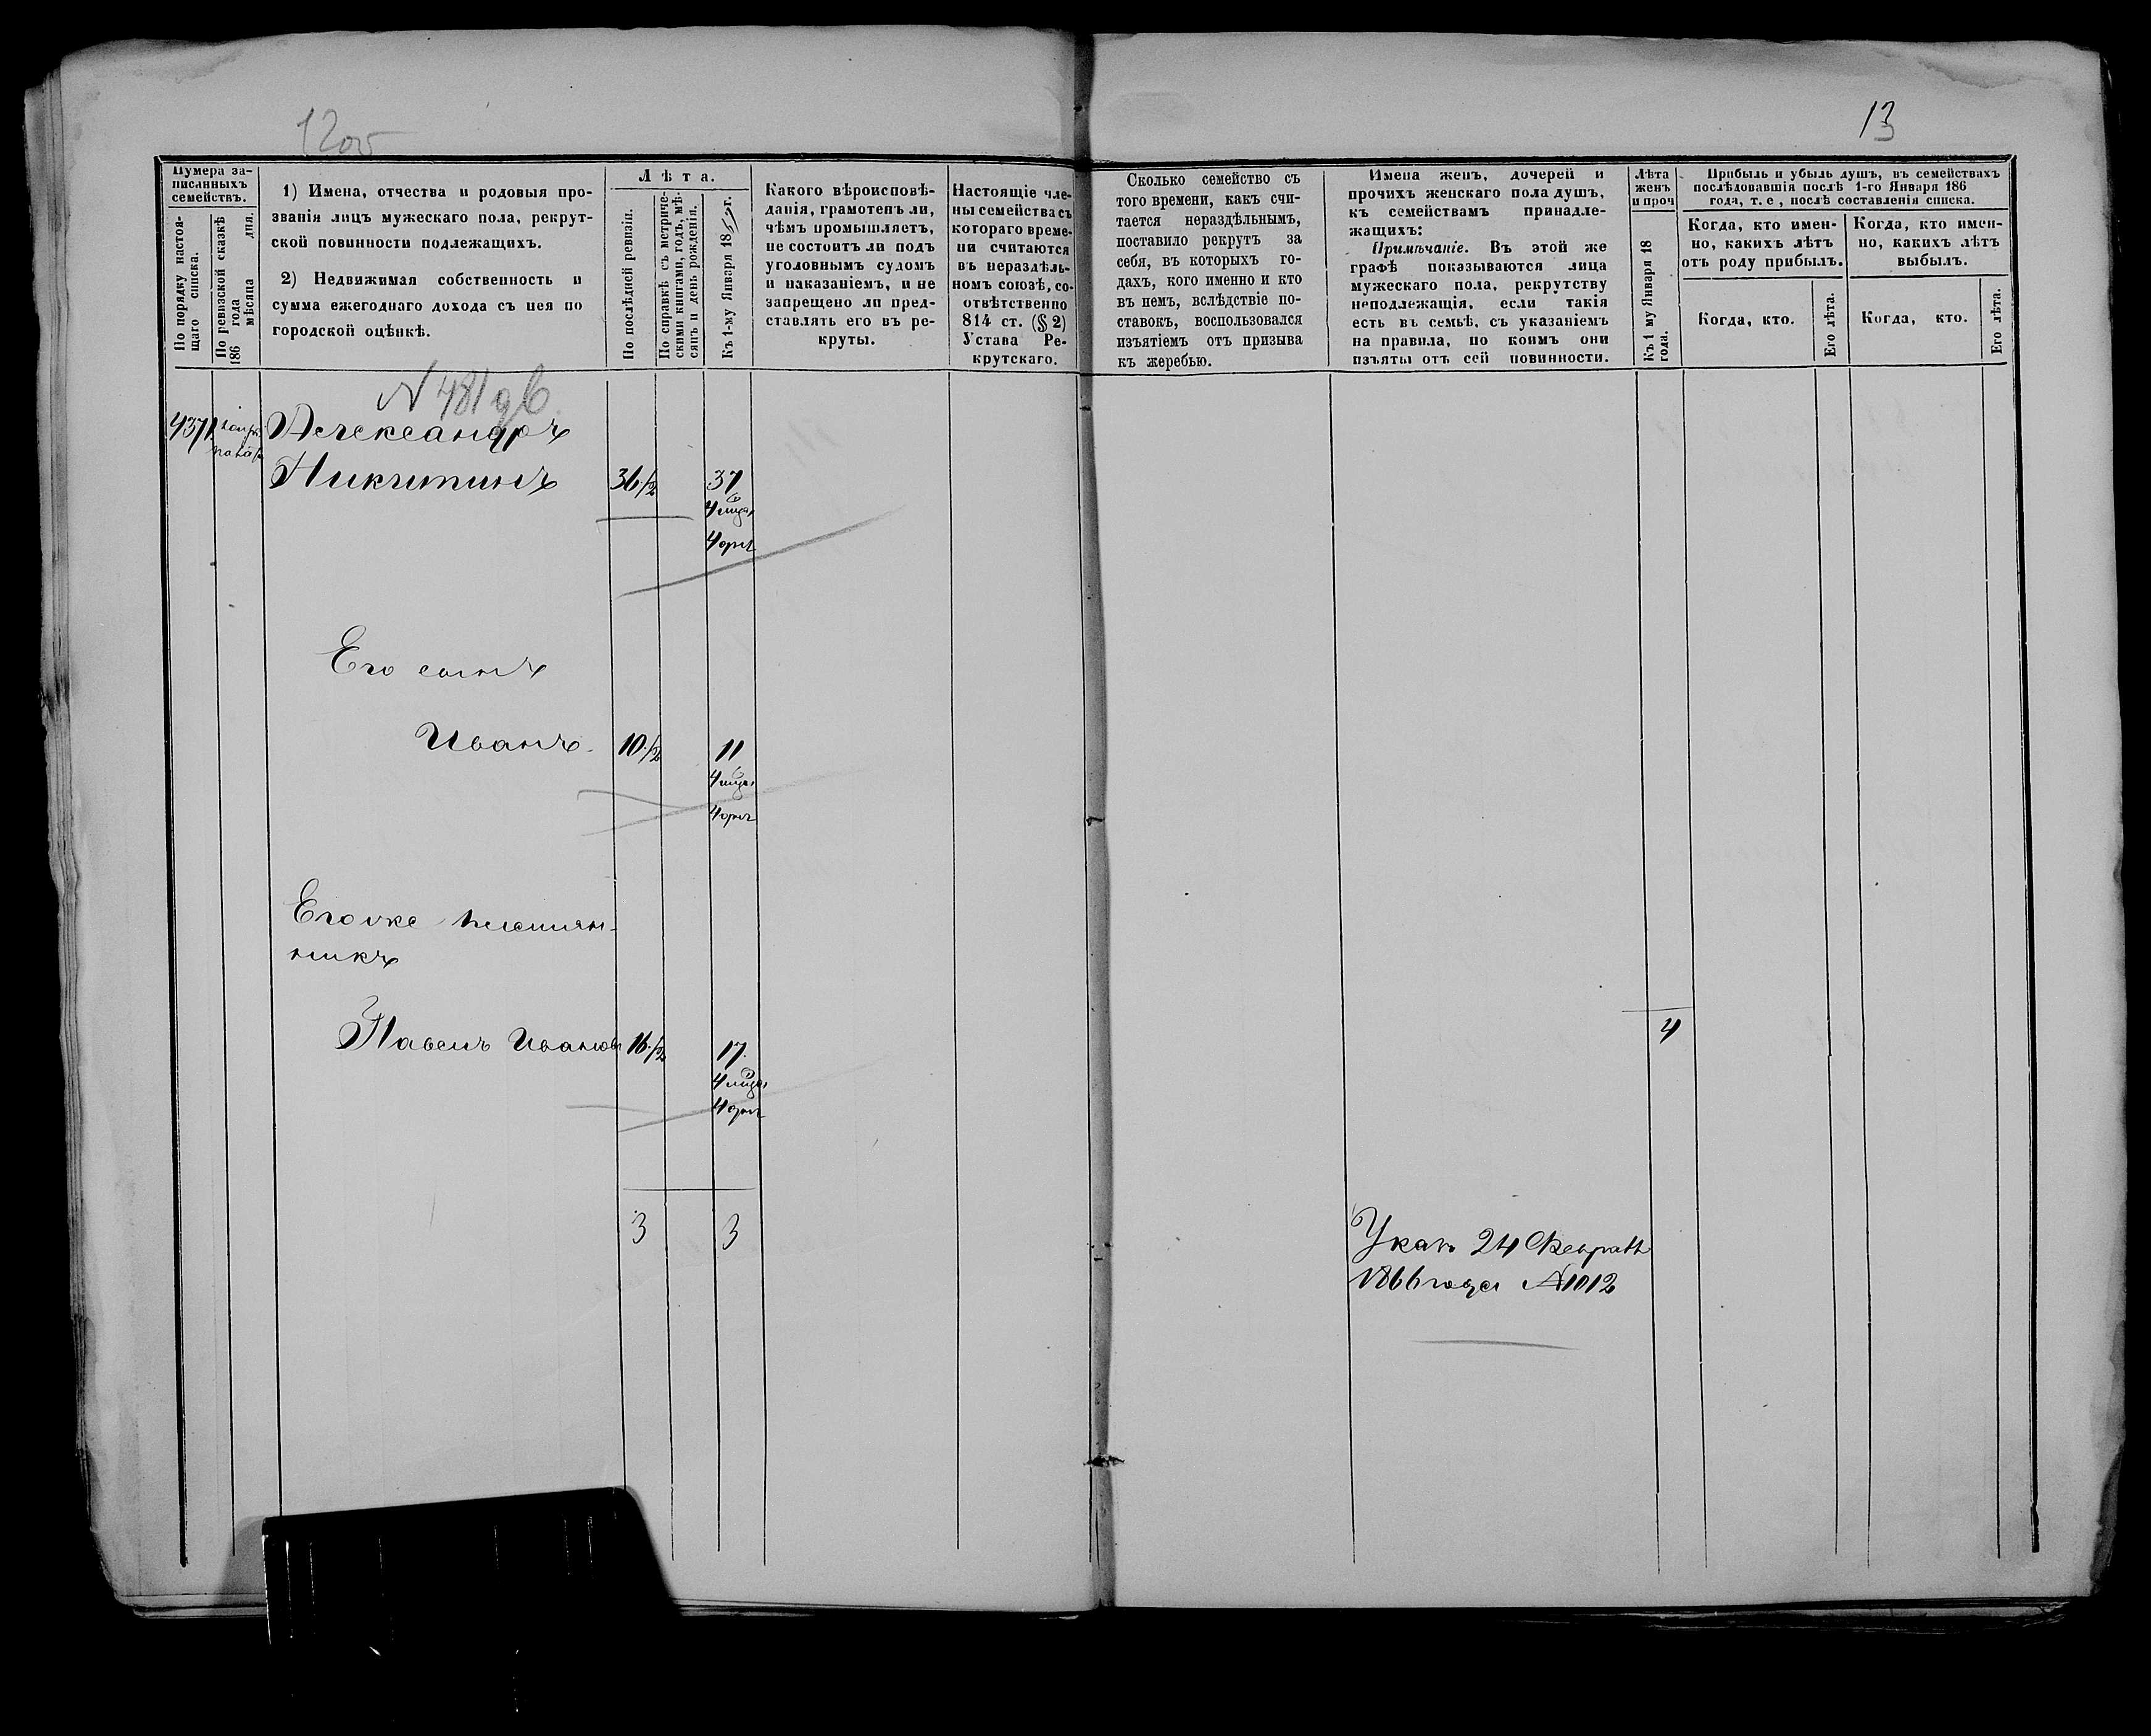 12об
13
Нумера за-
писанныхъ
семействъ.
По порядку настоя-
щаго списка.
По ревизской сказкѣ
186 года
мѣсяца дня.
1) Имена, отчества и родовыя про-
званія лицъ мужескаго пола, рекрут-
ской повинности подлежащихъ.
2) Недвижимая собственность и
сумма ежегоднаго дохода съ нея по
городской оцѣнкѣ.
Лѣта.
По послѣдней ревизіи.
По справкѣ съ метриче-
скими книгами, годъ, мѣ-
сяцъ и день рожденія.
Къ 1-му Января 18 г.
Какого вѣроисповѣ-
данія, грамотенъ ли,
чѣмъ промышляетъ,
не состоитъ ли подъ
уголовнымъ судомъ
и наказаніемъ, и не
запрещено ли пред-
ставлять его въ ре-
круты.
Настоящіе чле-
ны семейства съ
котораго време-
ни считаются
въ нераздѣль-
номъ союзѣ, со-
отвѣтственно
814 ст. (§ 2)
Устава Ре-
крутскаго.
Сколько семейство съ
того времени, какъ счи-
тается нераздѣльнымъ,
поставило рекрутъ за
себя, въ которыхъ го-
дахъ, кого именно и кто
въ немъ, вслѣдствіе по-
ставокъ, воспользовался
изъятіемъ отъ призыва
къ жеребью.
Имена женъ, дочерей и
прочихъ женскаго пола душъ,
къ семействамъ принадле-
жащихъ:
Примѣчаніе. Въ этой же
графѣ показываются лица
мужескаго пола, рекрутству
неподлежащія, если такія
есть въ семьѣ, съ указаніемъ
на правила, по коимъ они
изъяты отъ сей повинности.
Лѣта
женъ
и проч
Къ 1 му Января 18
года.
Прибыль и убыль душъ, въ семействахъ
послѣдовавшія послѣ 1-го Января 186
года, т. е , послѣ составленія списка.
Когда, кто имен-
но, какихъ лѣтъ
отъ роду прибылъ.
Когда, кто имен-
но, какихъ лѣтъ
выбылъ.
Когда, кто.
Его лѣта.
Когда, кто.
Его лѣта.
N 481 дв.
437 Александръ
Никитинъ 36 1/2 37
Его сынъ
Иванъ 10 1/2 11
Егоже племян-
никъ
Павелъ Ивановъ 16 1/2 17
4
3 3
Указъ 24 Февраля
1866 года №1012